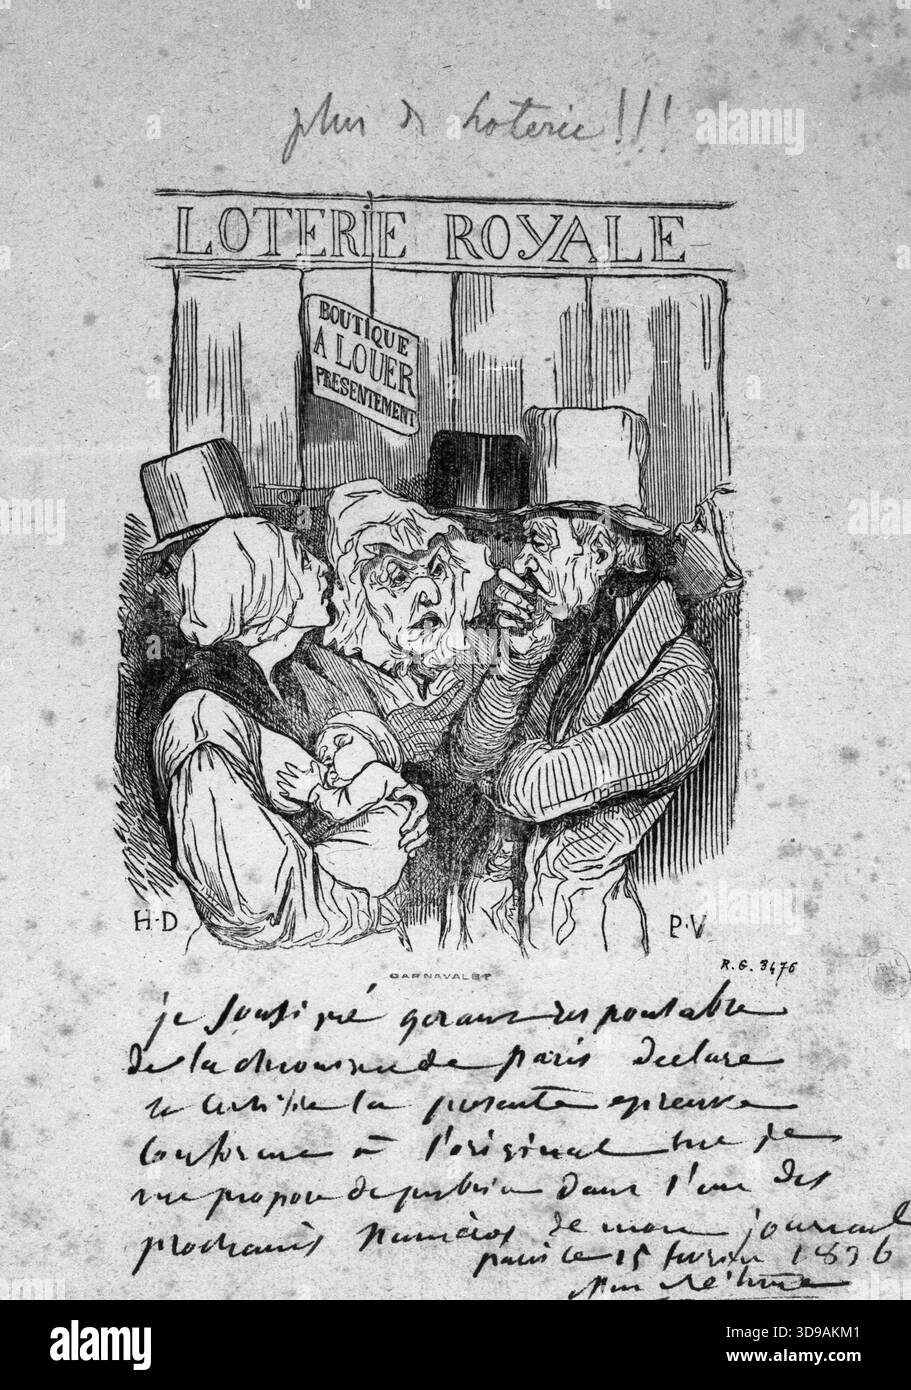 plus de Loterie!!!
LOTERIE ROYALE
BOUTIQUE
A LOUER
PRESENTEMENT
H·D
P·V
CARNAVALET
R.G. 3476
je soussigné gérant responsable
de la chronique de paris declare
la présente epreuve
Conforme à l'original que je
me propose de publier dans l'un des
prochains numéros de mon journal
paris le 15 fevrier 1836
alamy
Image ID: 3D9AKM1
www.alamy.com